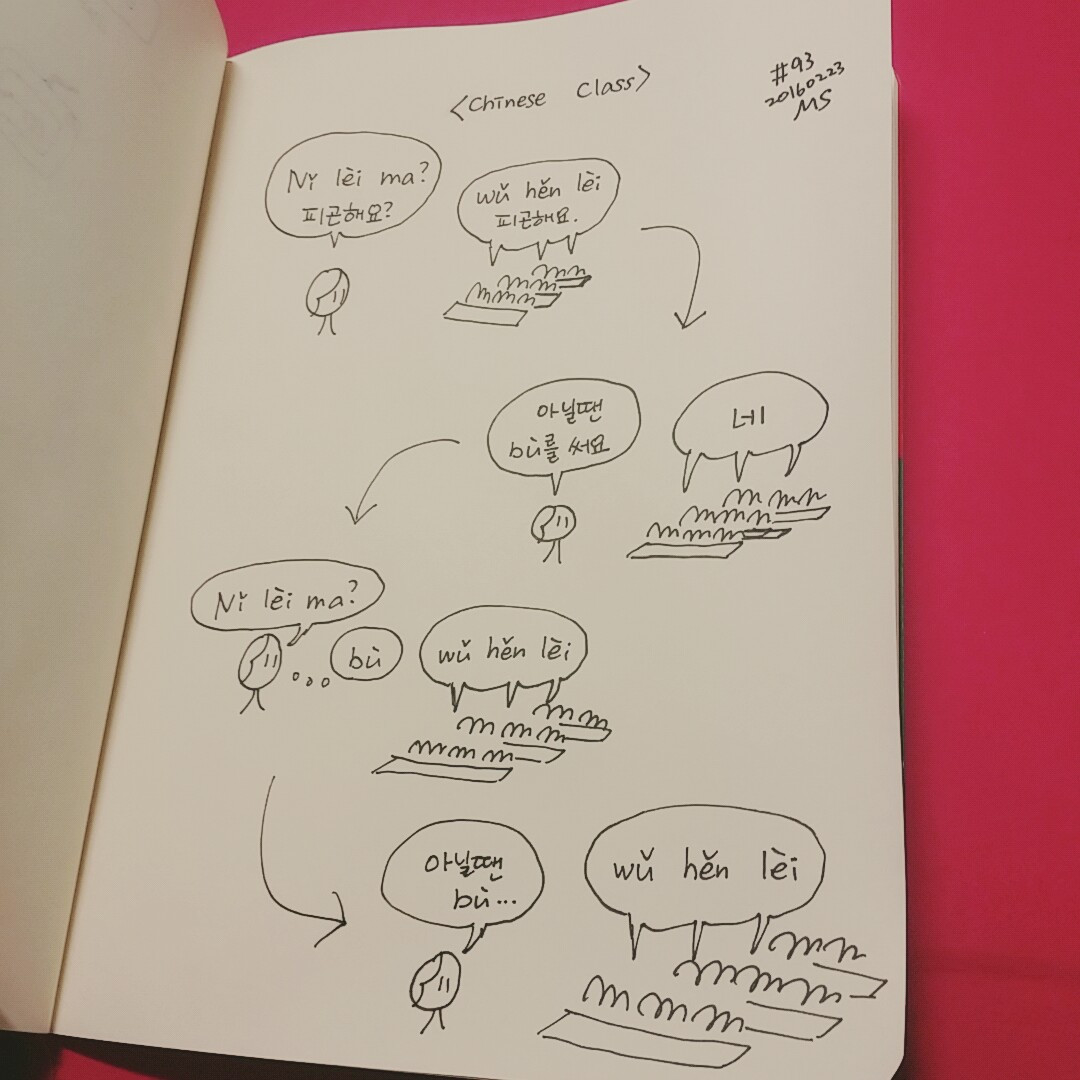 <Chinese Class>
#93
20160223
MS
Nǐ lèi ma?
피곤해요?
wǔ hěn lèi
피곤해요.
아닐땐
bù를 써요
네
Nǐ lèi ma?
bù
wǔ hěn lèi
아닐땐
bù...
wǔ hěn lèi